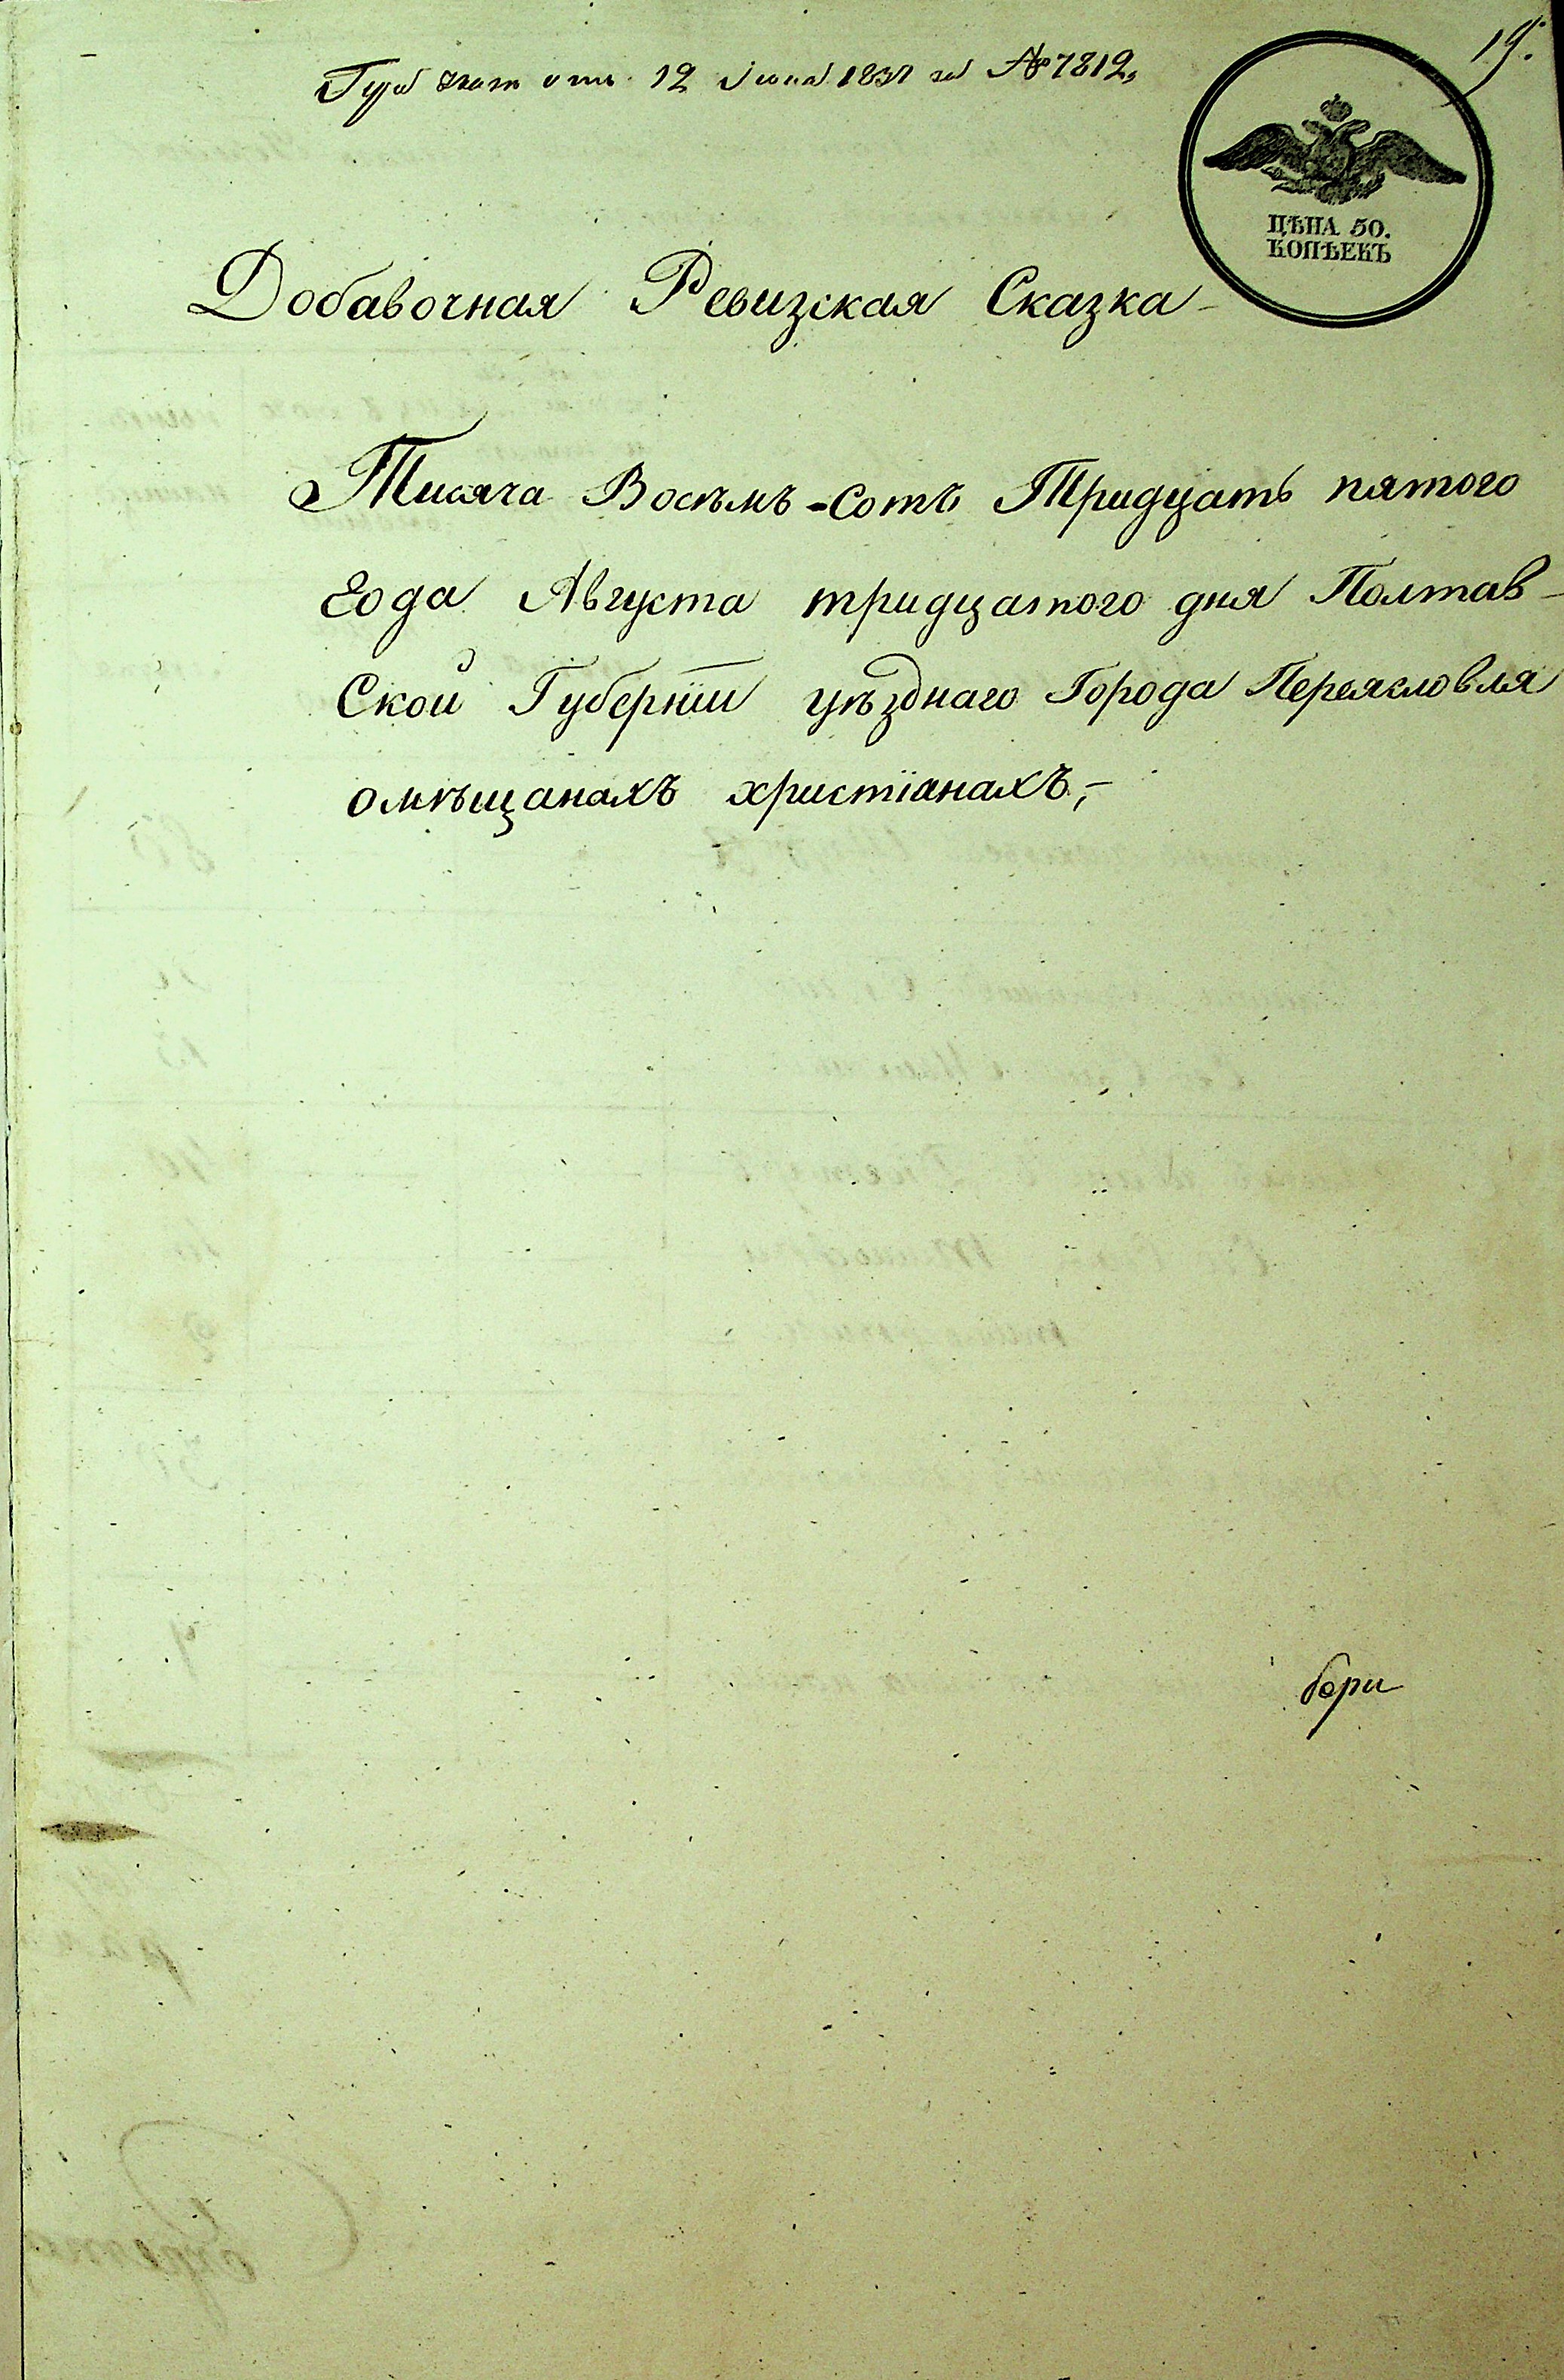 19.
отъ 12 Іюня 1837 за № 7812,
ЦѢНА 50.
КОПѢЕКЪ
Добавочная Ревизская Сказка
Тисяча Восѣмъ-Сотъ Тридцать пятого
Года Августа тридцатого дня Полтав-
Ской Губерніи уѣзднаго Города Переясловля
омѣщанахъ христіанахъ,-
бери